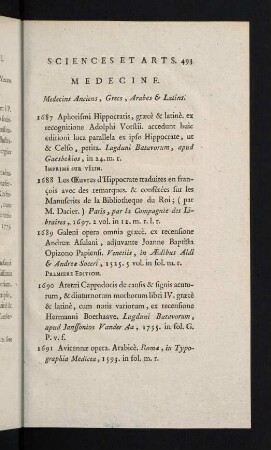 SCIENCES ET ARTS. 493
MEDECINE.
Medecins Anciens, Grecs, Arabes & Latins.
1687 Aphorismi Hippocratis, græcè & latinè. ex
recognitione Adolphi Vorstii. accedunt huic
editioni loca parallela ex ipso Hippocrate, ut
& Celso, petita. Lugduni Batavorum, apud
Gaesbekios, in 24. m. r.
IMPRIMÉ SUR VÉLIN.
1688 Les Œuvres d'Hippocrate traduites en fran-
çois avec des remarques, & conférées sur les
Manuscrits de la Bibliotheque du Roi; (par
M. Dacier.) Paris, par la Compagnie des Li-
braires, 1697. 2 vol. in 12. m. r. l. r.
1689 Galeni opera omnia græcè. ex recensione
Andreæ Asulani, adjuvante Joanne Baptista
Opizono Papiensi. Venetiis, in Ædibus Aldi
& Andreæ Soceri, 1525. 5 vol. in fol. m. r.
PREMIERE EDITION.
1690 Aretæi Cappadocis de causis & signis acuto-
rum, & diuturnorum morborum libri IV. græcè
& latinè, cum notis variorum, ex recensione
Hermanni Boerhaave. Lugduni Batavorum,
apud Janssonios Vander Aa, 1735. in fol. G.
P. v. f.
1691 Avicennæ opera. Arabicè. Romæ, in Typo-
graphia Medicea, 1593. in fol. m. r.